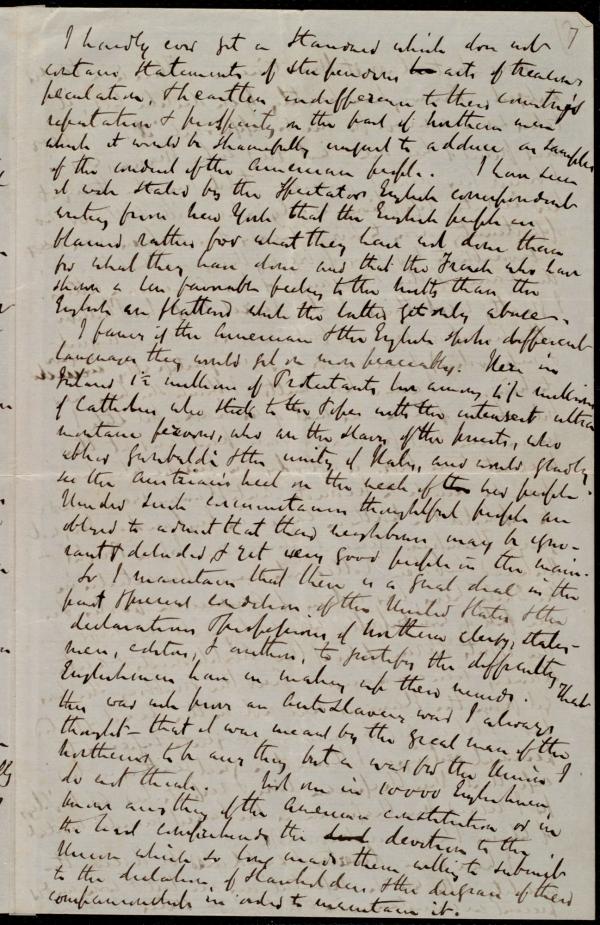 7
I hardly ever get a Standard which does not
contain statements of stupendous acts of treason
peculation, & heartless indifference to their country's
reputation & prosperity on the part of Northern men
which it would be shamefully unjust to adduce as samples
of the conduct of the American people. I have seen
it well stated by the Spectator's English correspondent
writing from New York that the English people are
blamed rather for what they have not done than
for what they have done and that the French who have
shown a less favourable feeling to the North than the
English are flattered while the latter get only abuse.
I fancy if the Americans & the English spoke different
languages they would get on more peaceably. Here in
Ireland 1½ millions of Protestants live among millions
of Catholics who stick to the Pope with the intensest ultra
montane fervour, who are the slaves of the priests, who
abhor Garibaldi & the unity of Italy, and would gladly
see the Austrian's heel on the neck of her people.
Under such circumstances thoughtful people are
obliged to admit that their neighbours may be igno-
rant & deluded & yet very good people in the main.
So I maintain that there is a great deal in the
past & present condition of the United States & the
declarations & professions of Northern clergy, states-
men, editors, & authors, to justify the difficulty
Englishmen have in making up their minds. That
this was not from an antislavery war I always
thought - that it was meant by the great mass of the
Northerners to be any thing but a war for the Union I
do not think. Not one in 10000 Englishmen
know any thing of the American constitution or in
the least comprehends the devotion to the
Union which so long made them willing to submit
to the dictation of slaveholders & the disgrace of their
companionship in order to maintain it.